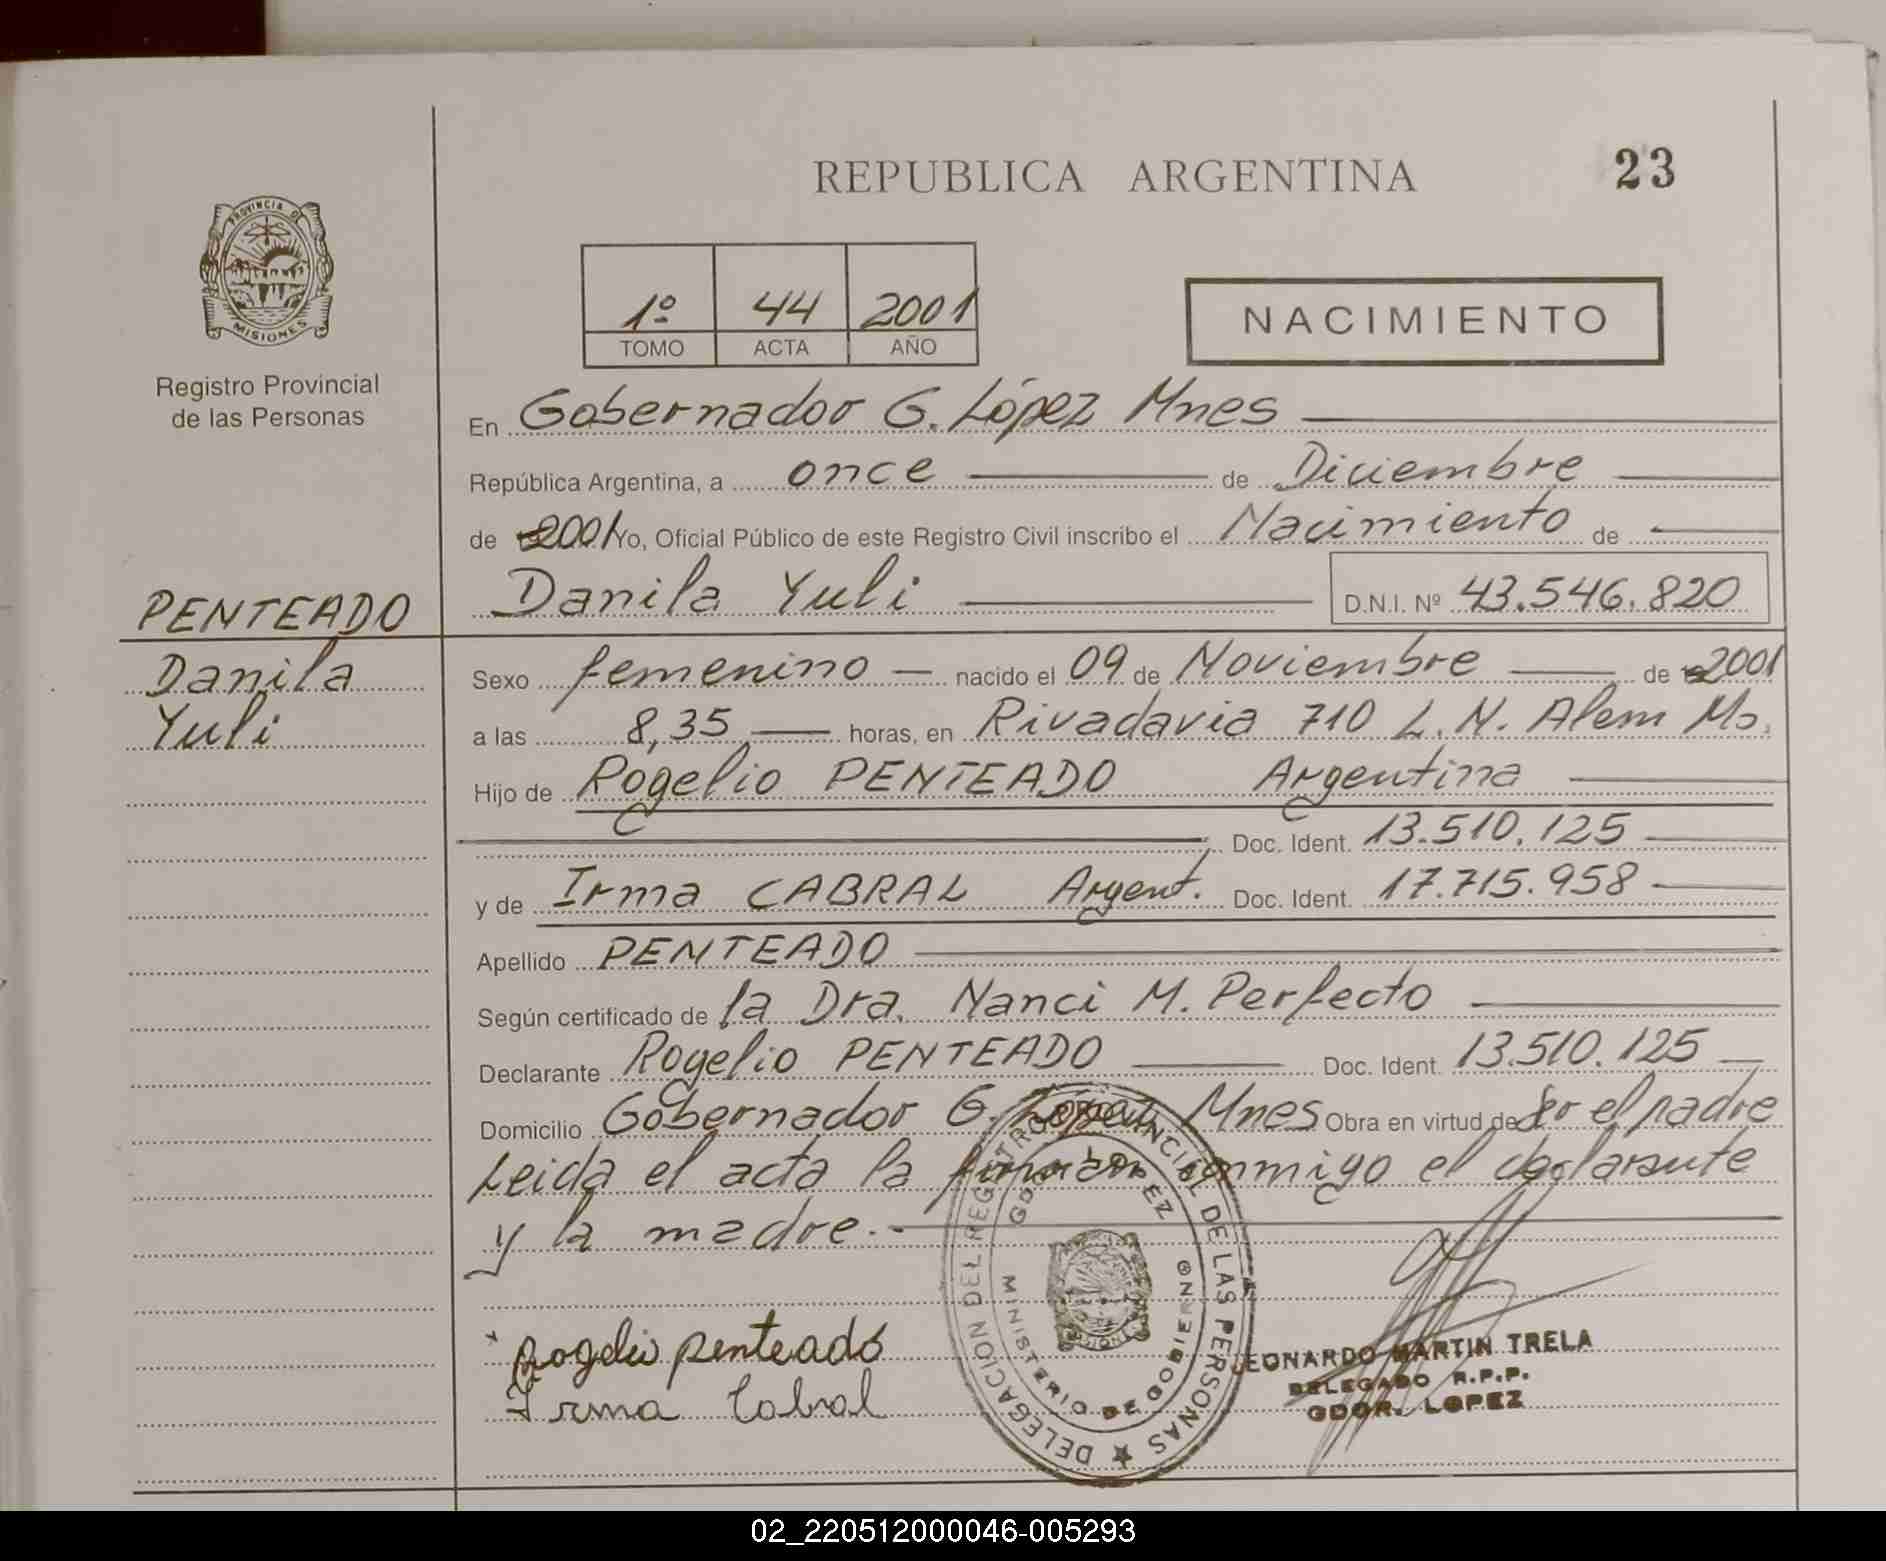 REPUBLICA ARGENTINA
23
PROVINCIA DE
MISIONES
Registro Provincial
de las Personas
1º 44 2001
TOMO ACTA AÑO
NACIMIENTO
En Gobernador G. López Mnes
República Argentina, a once de Diciembre
de 2001 Yo, Oficial Público de este Registro Civil inscribo el Nacimiento de
PENTEADO
Danila
Yuli
Danila Yuli D.N.I. Nº 43.546.820
Sexo femenino nacido el 09 de Noviembre de 2001
a las 8,35 horas, en Rivadavia 710 L.N. Alem Ms.
Hijo de Rogelio PENTEADO Argentina
Doc. Ident. 13.510.125
y de Irma CABRAL Argent. Doc. Ident. 17.715.958
Apellido PENTEADO
Según certificado de la Dra. Nanci M. Perfecto
Declarante Rogelio PENTEADO Doc. Ident. 13.510.125
Domicilio Gobernador G. López Mnes Obra en virtud de Sr el padre
Leida el acta la firman conmigo el declarante
y la madre.-
Rogelio penteado
Irma Cabral
DELEGACION DEL REGISTRO PROVINCIAL DE LAS PERSONAS
GDOR. LOPEZ
MINISTERIO DE GOBIERNO
MISIONES
LEONARDO MARTIN TRELA
DELEGADO R.P.P.
GDOR. LOPEZ
02_220512000046-005293